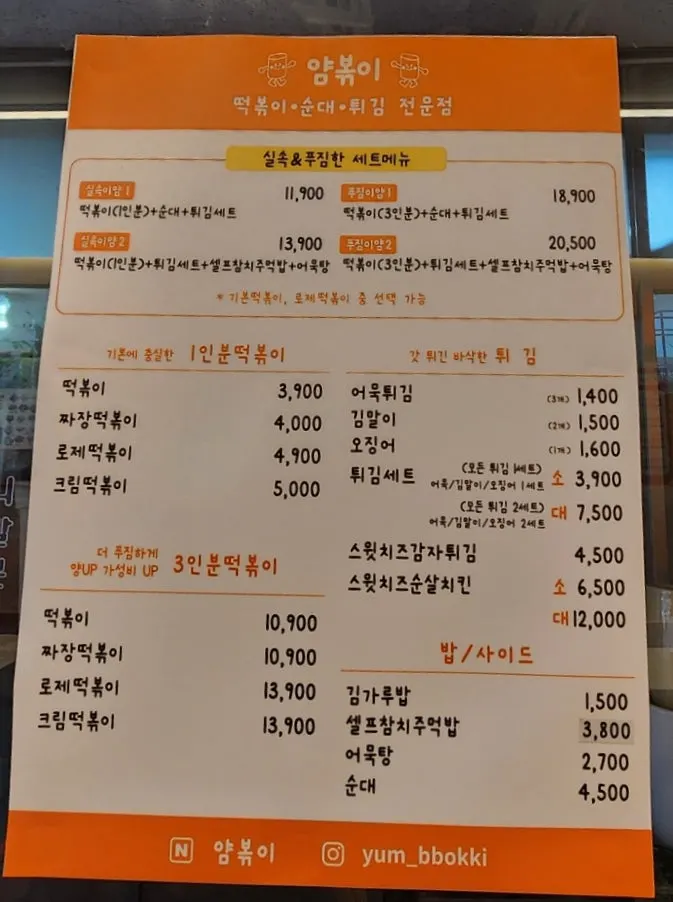 얌볶이
떡볶이•순대•튀김 전문점
실속&푸짐한 세트메뉴
실속이얌 1 11,900
떡볶이(1인분)+순대+튀김세트
푸짐이얌 1 18,900
떡볶이(3인분)+순대+튀김세트
실속이얌 2 13,900
떡볶이(1인분)+튀김세트+셀프참치주먹밥+어묵탕
푸짐이얌 2 20,500
떡볶이(3인분)+튀김세트+셀프참치주먹밥+어묵탕
* 기본떡볶이, 로제떡볶이 중 선택 가능
기본에 충실한 1인분떡볶이
떡볶이 3,900
짜장떡볶이 4,000
로제떡볶이 4,900
크림떡볶이 5,000
더 푸짐하게
양UP 가성비 UP 3인분떡볶이
떡볶이 10,900
짜장떡볶이 10,900
로제떡볶이 13,900
크림떡볶이 13,900
갓 튀긴 바삭한 튀 김
어묵튀김 (3개) 1,400
김말이 (2개) 1,500
오징어 (1개) 1,600
튀김세트 (모든 튀김 1세트) 소 3,900
어묵/김말이/오징어 1세트
(모든 튀김 2세트) 대 7,500
어묵/김말이/오징어 2세트
스윗치즈감자튀김 4,500
스윗치즈순살치킨 소 6,500
대 12,000
밥/사이드
김가루밥 1,500
셀프참치주먹밥 3,800
어묵탕 2,700
순대 4,500
N 얌볶이 yum_bbokki